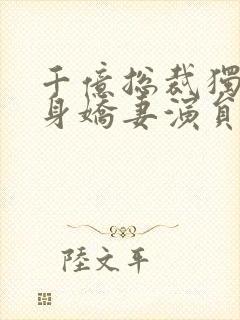 千億總裁獨
身嬌妻演員
陸文平